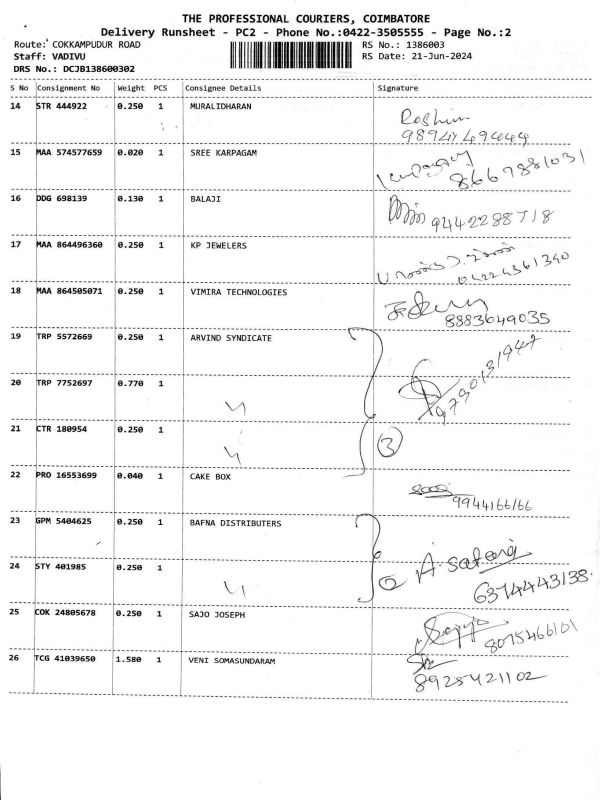 THE PROFESSIONAL COURIERS, COIMBATORE
Delivery Runsheet - PC2 - Phone No.:0422-3505555 - Page No.:2
Route: COKKAMPUDUR ROAD RS No.: 1386003
Staff: VADIVU RS Date: 21-Jun-2024
DRS No.: DCJB138600302
S No Consignment No Weight PCS Consignee Details Signature
14 STR 444922 0.250 1 MURALIDHARAN
15 MAA 574577659 0.020 1 SREE KARPAGAM
8667881031
16 DDG 698139 0.130 1 BALAJI
9442288718
17 MAA 864496360 0.250 1 KP JEWELERS
04224361340
18 MAA 864505071 0.250 1 VIMIRA TECHNOLOGIES
8883649035
19 TRP 5572669 0.250 1 ARVIND SYNDICATE
9790131947
20 TRP 7752697 0.770 1
21 CTR 180954 0.250 1
3
22 PRO 16553699 0.040 1 CAKE BOX
9944166166
23 GPM 5404625 0.250 1 BAFNA DISTRIBUTERS
24 STY 401985 0.250 1
6374443138
25 COK 24805678 0.250 1 SAJO JOSEPH
8075466101
26 TCG 41039650 1.580 1 VENI SOMASUNDARAM
8925421102